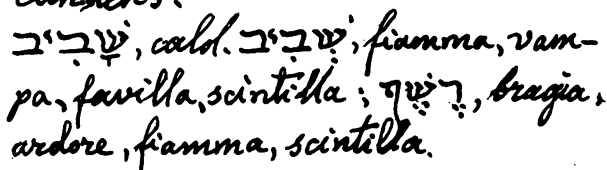 שָׁבִיב, cald. שְׁבִיב; fiamma, vam-
pa, favilla, scintilla; רֶשֶׁף, bragia,
ardore, fiamma, scintilla.